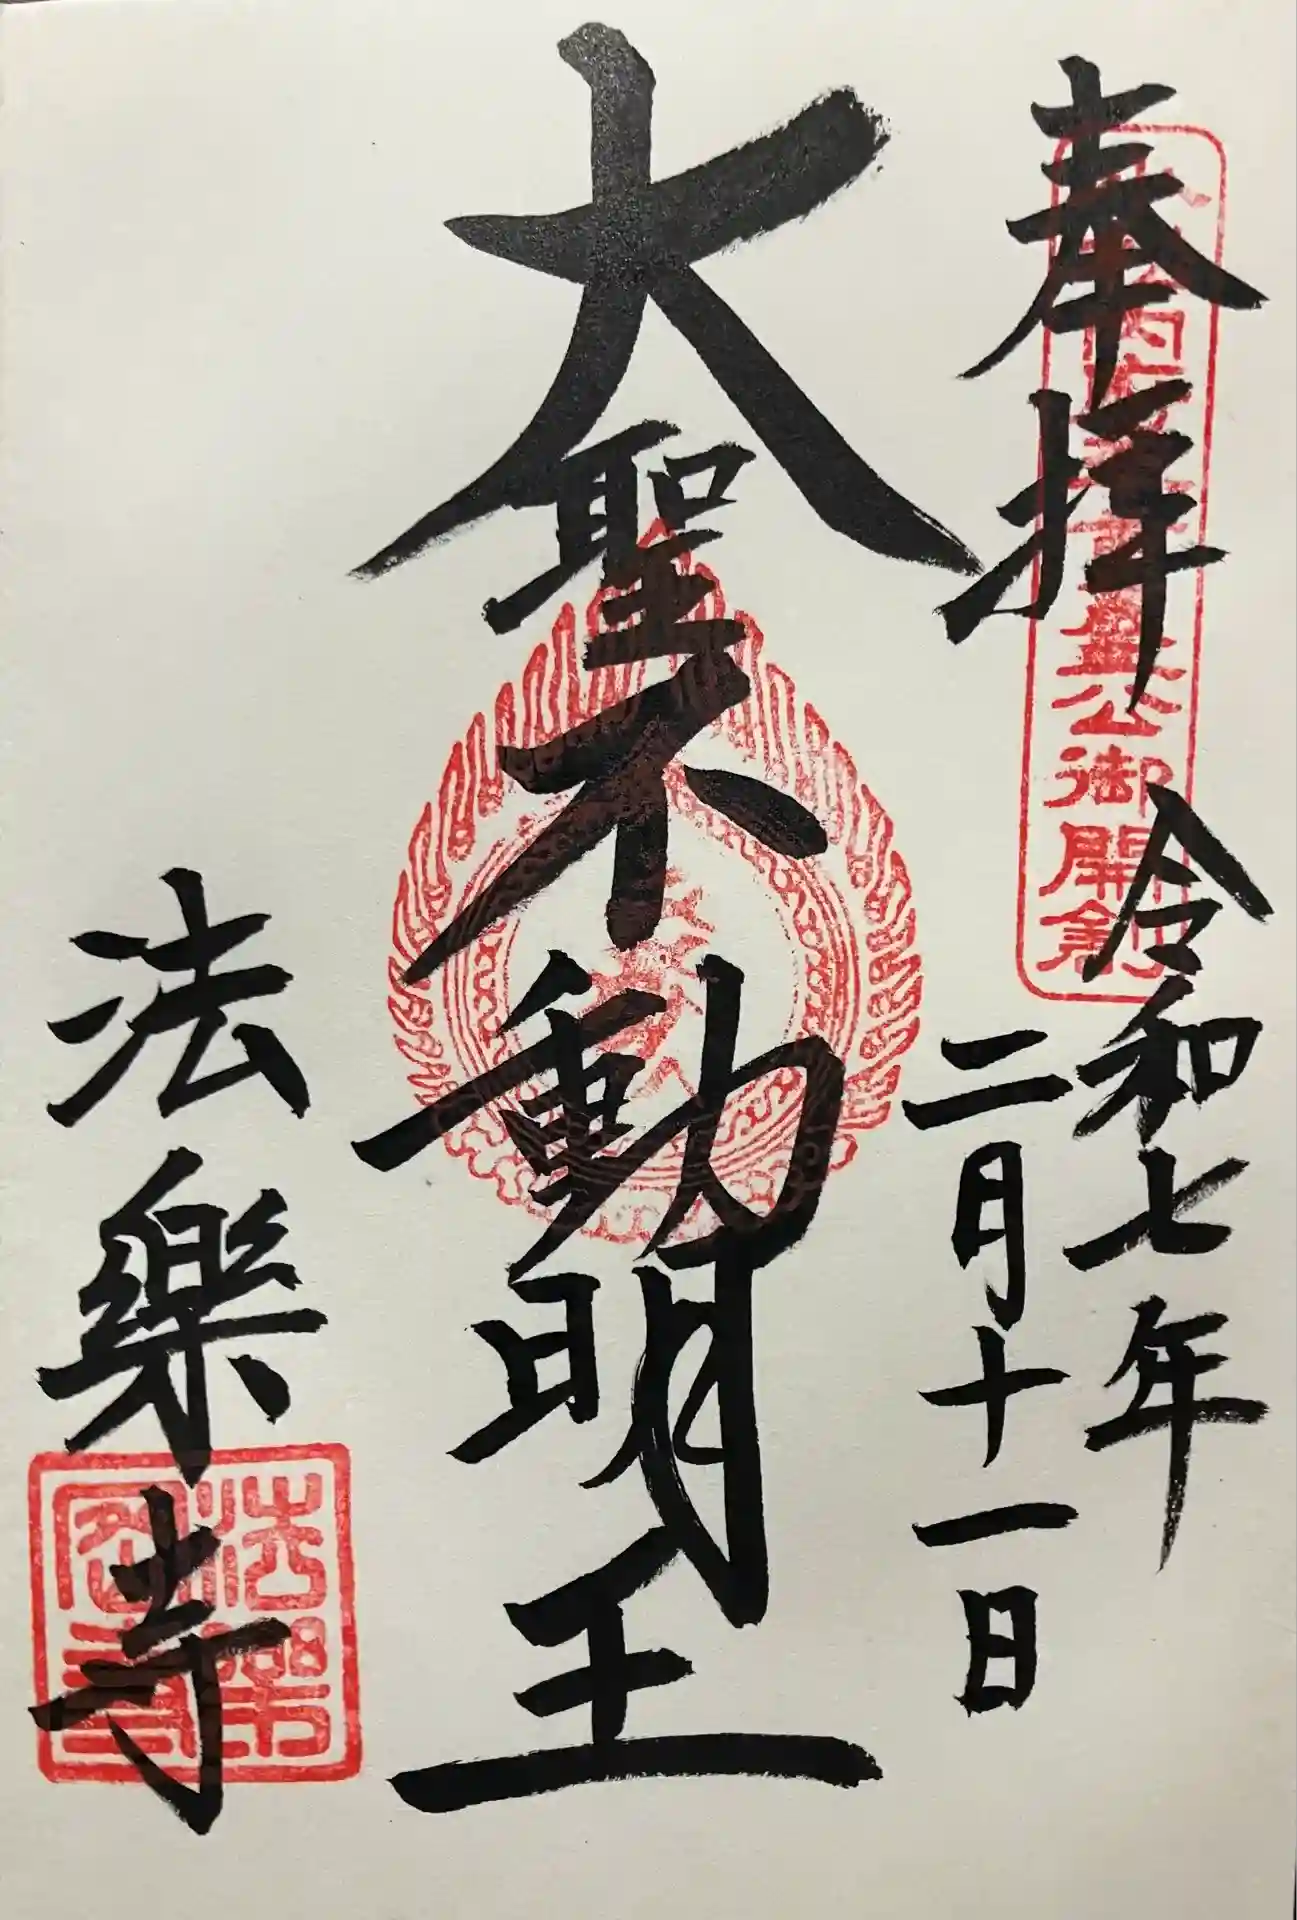 奉拝
重盛公御開創
令和七年
二月十一日
大聖不動明王
法樂寺
法樂